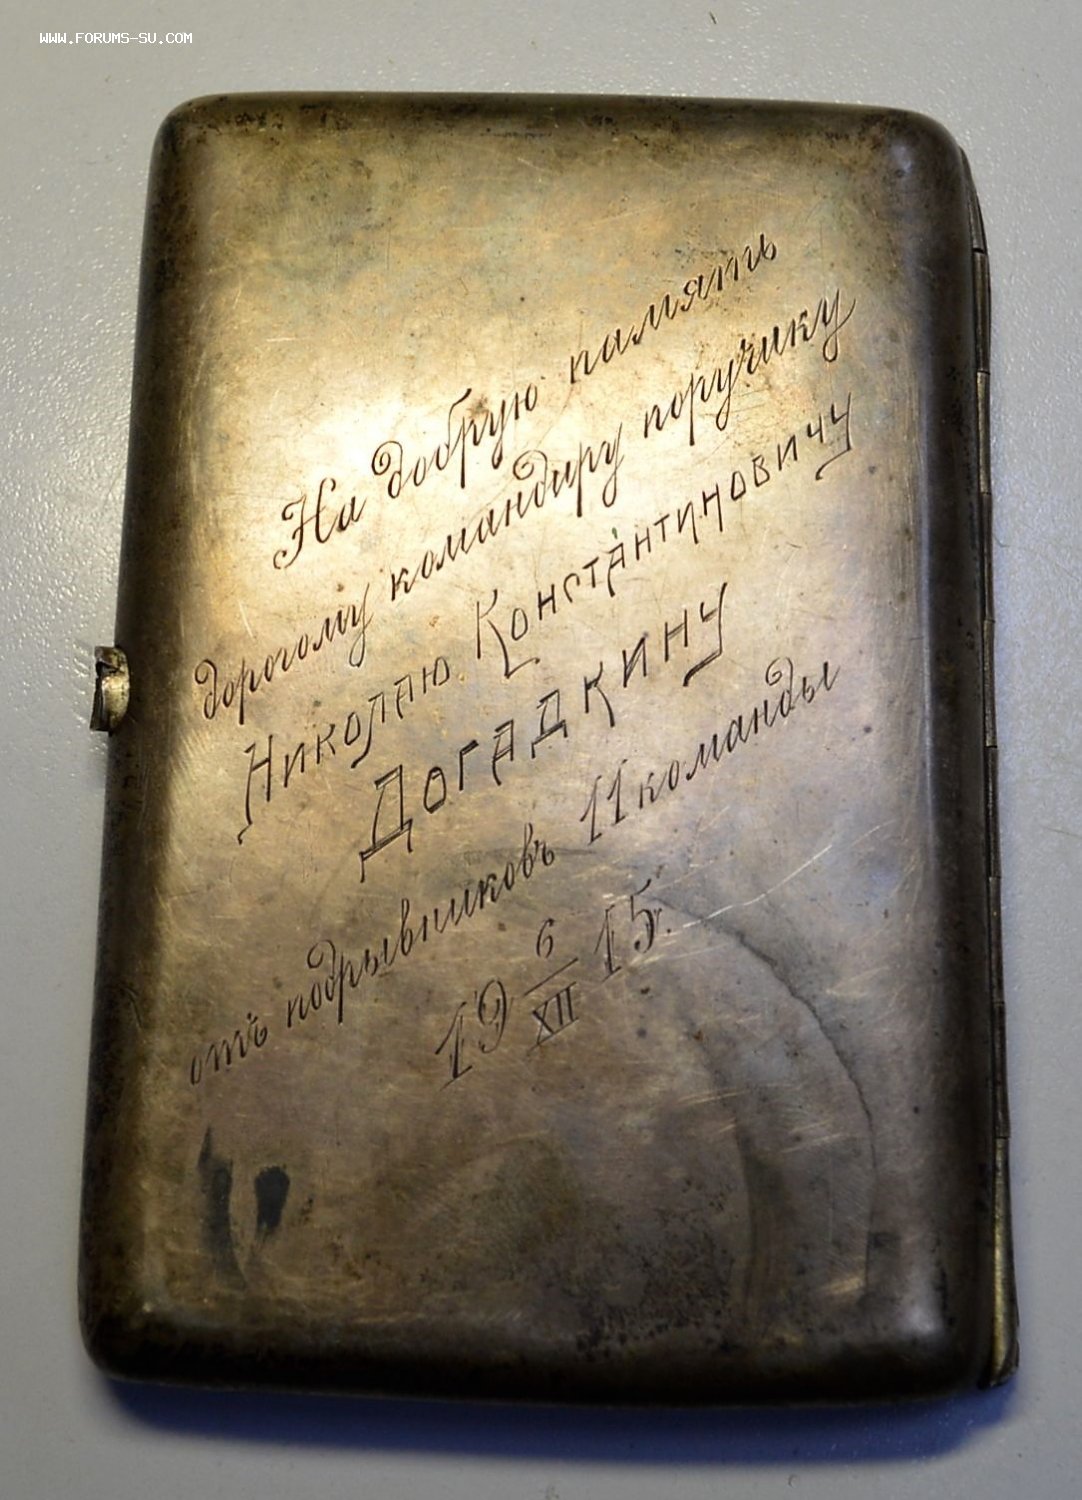 WWW.FORUMS-SU.COM
На добрую память
дорогому командиру поручику
Николаю Константиновичу
Догадкину
отъ подрывниковъ 11 команды
19 6/XII 15.